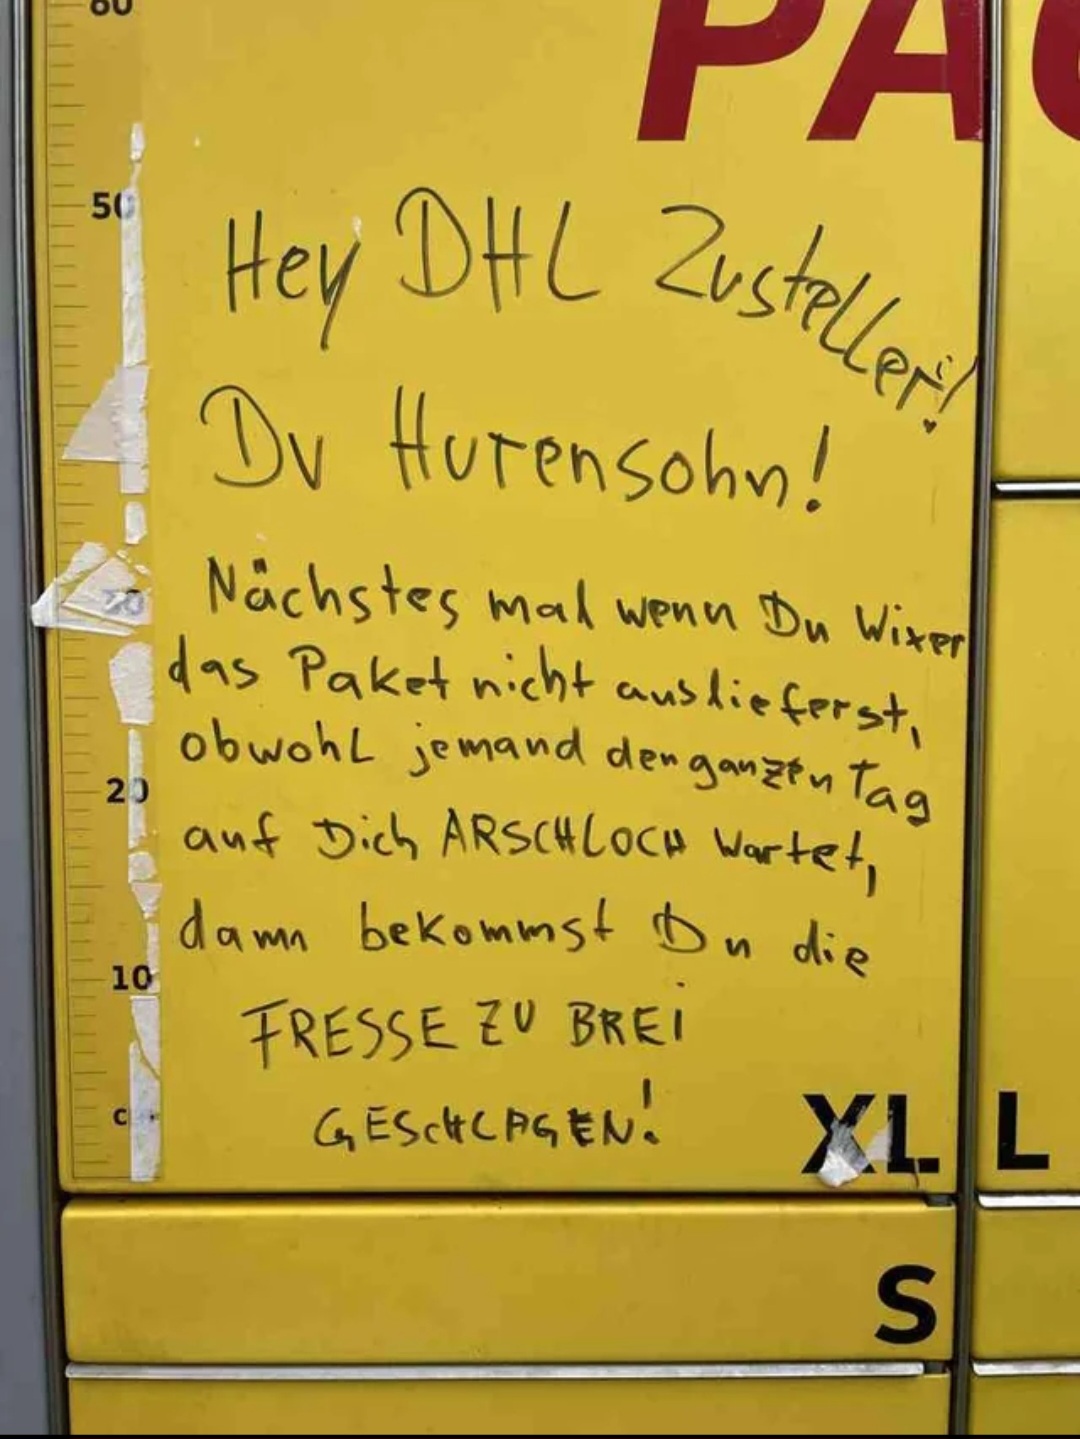 60
PA
50
Hey DHL Zusteller!
Du Hurensohn!
30
Nächstes mal wenn Du Wixer
das Paket nicht auslieferst,
obwohl jemand den ganzen Tag
20
auf Dich ARSCHLOCH wartet,
dann bekommst Du die
10
FRESSE ZU BREI
GESCHLAGEN!
c
XL
L
S